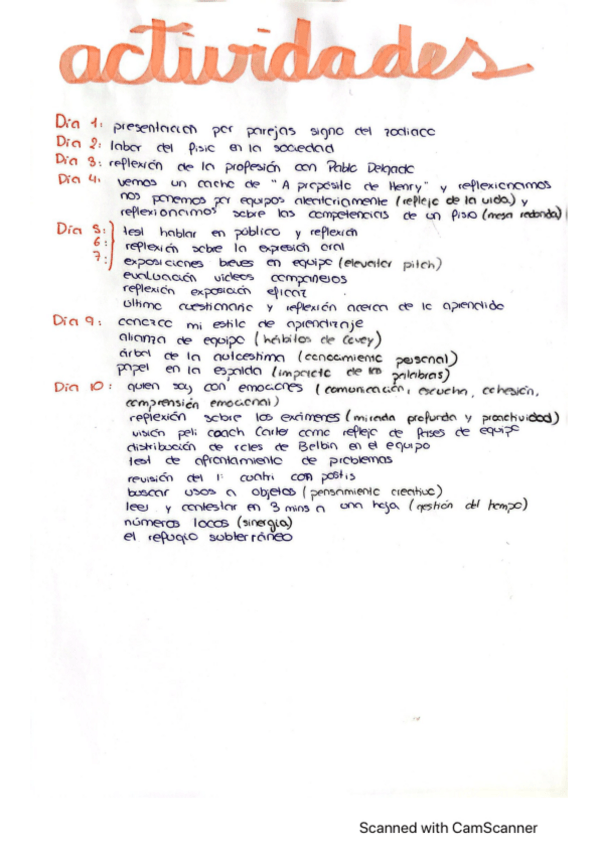 actividades
Día 1: presentación por parejas signo del zodiaco
Día 2: labor del fisio en la sociedad
Día 3: reflexión de la profesión con Pablo Delgado
Día 4: vemos un cacho de "A propósito de Henry" y reflexionamos
nos ponemos por equipos aleatoriamente (reflejo de la vida) y
reflexionamos sobre las competencias de un fisio (mesa redonda)
Día 5: test hablar en público y reflexión
6: reflexión sobre la expresión oral
7: exposiciones breves en equipo (elevator pitch)
evaluación vídeos compañeros
reflexión exposición eficaz
último cuestionario y reflexión acerca de lo aprendido
Día 9: conozco mi estilo de aprendizaje
alianza de equipo (hábitos de Covey)
árbol de la autoestima (conocimiento personal)
papel en la espalda (impacto de las palabras)
Día 10: quien soy con emociones (comunicación, escucha, cohesión,
comprensión emocional)
reflexión sobre los exámenes (mirada profunda y proactividad)
visión peli coach Carter como reflejo de fases de equipo
distribución de roles de Belbin en el equipo
test de afrontamiento de problemas
revisión del 1º contri con postis
buscar usos a objetos (pensamiento creativo)
leer y contestar en 3 mins a una hoja (gestión del tiempo)
números locos (sinergia)
el refugio subterráneo
Scanned with CamScanner